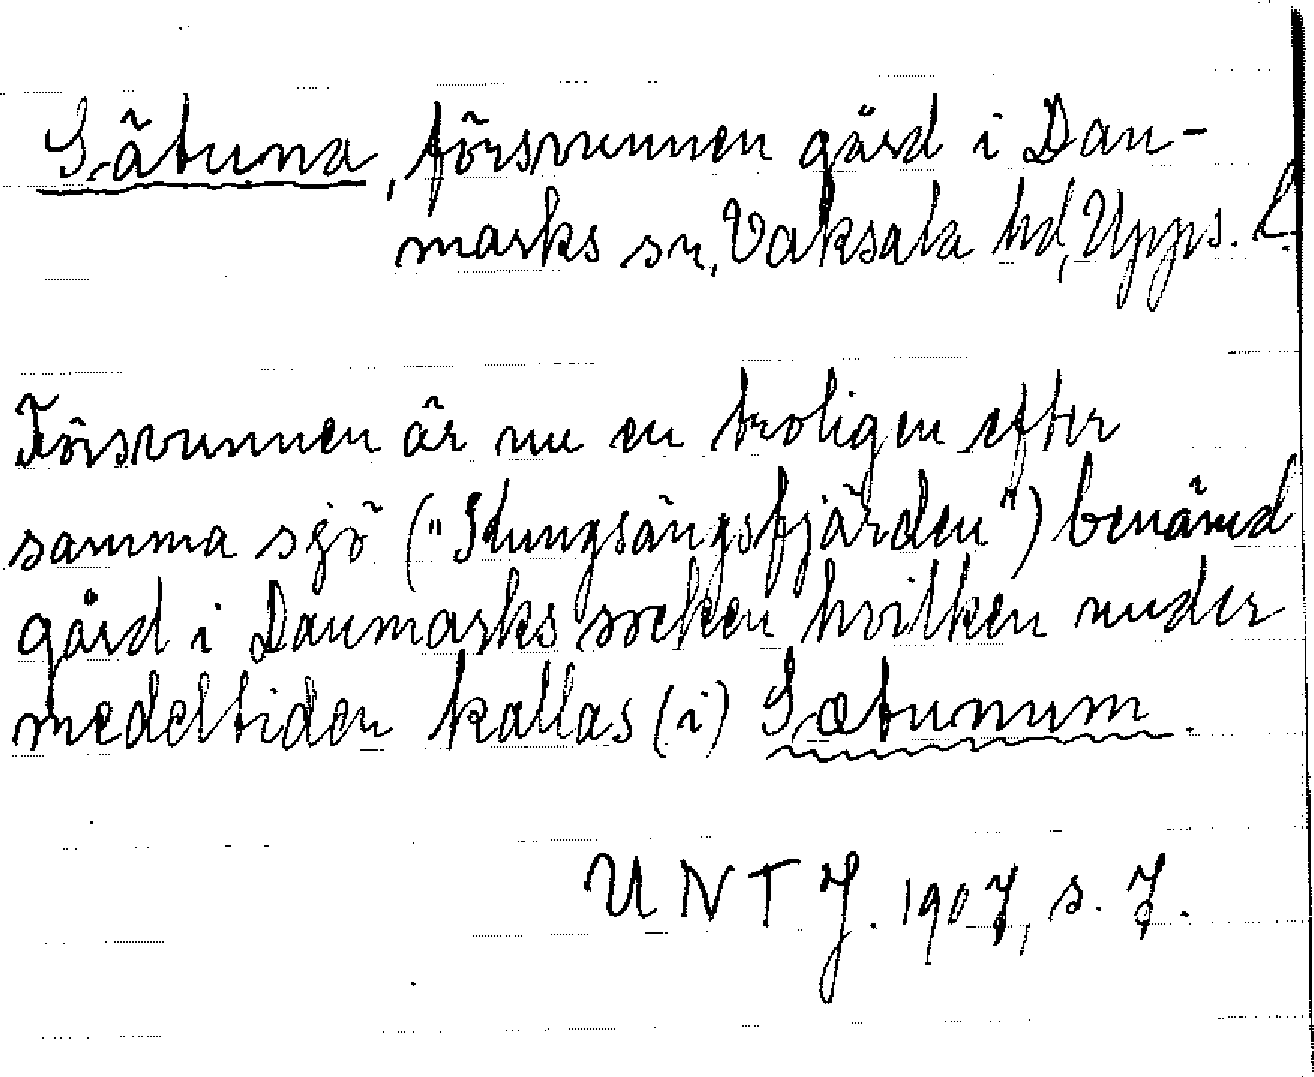 Sätuna, försvunnen gård i Dan-
marks sn, Vaksala hd, Upps. L.
Försvunnen är nu en troligen efter
samma sjö ("Kungsängsfjärden") benämd
gård i Danmarks socken hvilken under
medeltiden kallas (i) Sætunum.
UNT J. 1907, s. 7.